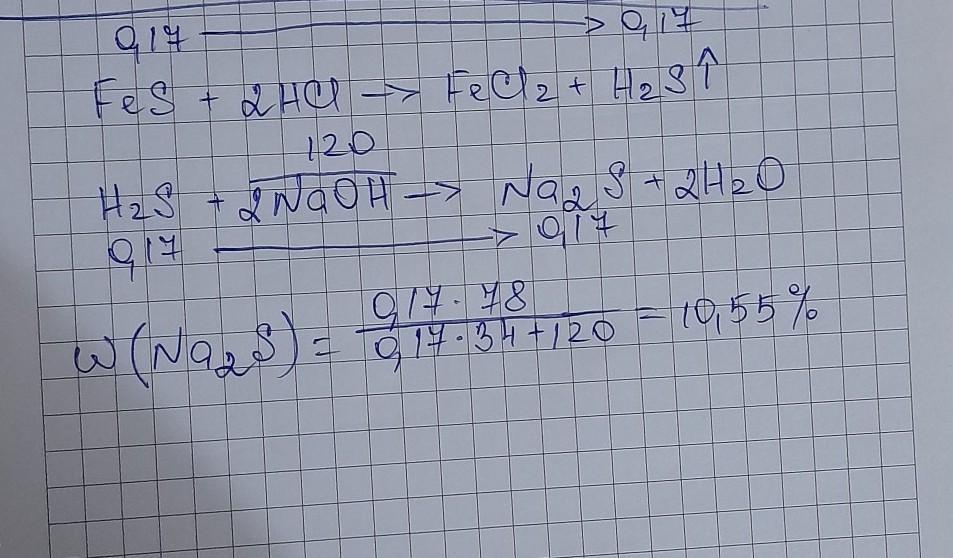 0,17 → 0,17
FeS + 2HCl → FeCl₂ + H₂S↑
120
H₂S + 2NaOH → Na₂S + 2H₂O
0,17 → 0,17
ω(Na₂S) = 0,17·78 / 0,17·34+120 = 10,55%